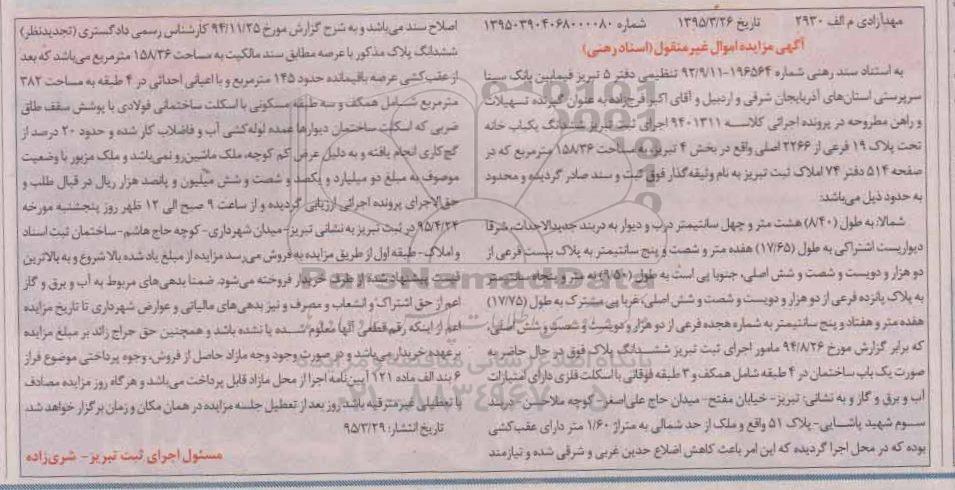 مهدآزادی م الف ۲۹۳۰ تاریخ ۱۳۹۵/۳/۲۶ شماره ۱۳۹۵۰۳۹۰۴۰۶۸۰۰۰۰۸۰
آگهی مزایده اموال غیرمنقول (اسناد رهنی)
به استناد سند رهنی شماره ۱۹۶۵۶۴-۹۲/۹/۱۱ تنظیمی دفتر ۵ تبریز فیمابین بانک سینا
سرپرستی استان‌های آذربایجان شرقی و اردبیل و آقای اکبر فرج‌زاده به عنوان گیرنده تسهیلات
و راهن مطروحه در پرونده اجرائی کلاسه ۹۴۰۱۳۱۱ اجرای ثبت تبریز ششدانگ یکباب خانه
تحت پلاک ۱۹ فرعی از ۲۲۶۶ اصلی واقع در بخش ۴ تبریز به مساحت ۱۵۸/۳۶ مترمربع که در
صفحه ۵۱۴ دفتر ۷۴ املاک ثبت تبریز به نام وثیقه‌گذار فوق ثبت و سند صادر گردیده و محدود
به حدود ذیل می‌باشد:
شمالا: به طول (۸/۴۰) هشت متر و چهل سانتیمتر درب و دیوار به دربند جدیدالاحداث، شرقا
دیواریست اشتراکی به طول (۱۷/۶۵) هفده متر و شصت و پنج سانتیمتر به پلاک بیست فرعی از
دو هزار و دویست و شصت و شش اصلی، جنوبا پی است به طول (۹/۵۰) نه متر و پنجاه سانتیمتر
به پلاک پانزده فرعی از دو هزار و دویست و شصت و شش اصلی، غربا پی مشترک به طول (۱۷/۷۵)
هفده متر و هفتاد و پنج سانتیمتر به شماره هجده فرعی از دو هزار و دویست و شصت و شش اصلی،
که برابر گزارش مورخ ۹۴/۸/۲۶ مامور اجرای ثبت تبریز ششدانگ پلاک فوق در حال حاضر به
صورت یک باب ساختمان در ۴ طبقه شامل همکف و ۳ طبقه فوقانی با اسکلت فلزی دارای امتیازات
آب و برق و گاز و به نشانی: تبریز- خیابان مفتح- میدان حاج علی‌اصغر- کوچه ملاحسن- دربند
سوم شهید پاشایی- پلاک ۵۱ واقع و ملک از حد شمالی به متراژ ۱/۶۰ متر دارای عقب‌کشی
بوده که در محل اجرا گردیده که این امر باعث کاهش اضلاع حدین غربی و شرقی شده و نیازمند
اصلاح سند می‌باشد و به شرح گزارش مورخ ۹۴/۱۱/۲۵ کارشناس رسمی دادگستری (تجدیدنظر)
ششدانگ پلاک مذکور با عرصه مطابق سند مالکیت به مساحت ۱۵۸/۳۶ مترمربع می‌باشد که بعد
از عقب‌کشی عرصه باقیمانده حدود ۱۴۵ مترمربع و با اعیانی احداثی در ۴ طبقه به مساحت ۳۸۲
مترمربع شامل همکف و سه طبقه مسکونی با اسکلت ساختمانی فولادی با پوشش سقف طاق
ضربی که اسکلت ساختمان دیوارها عمده لوله‌کشی آب و فاضلاب کار شده و حدود ۲۰ درصد از
گچ‌کاری انجام یافته و به دلیل عرض کم کوچه، ملک ماشین‌رو نمی‌باشد و ملک مزبور با وضعیت
موصوف به مبلغ دو میلیارد و یکصد و شصت و شش میلیون و پانصد هزار ریال در قبال طلب و
حق‌الاجرای پرونده اجرائی ارزیابی گردیده و از ساعت ۹ صبح الی ۱۲ ظهر روز پنجشنبه مورخه
۹۵/۴/۲۴ در ثبت تبریز به نشانی تبریز- میدان شهرداری- کوچه حاج هاشم- ساختمان ثبت اسناد
و املاک- طبقه اول از طریق مزایده به فروش می‌رسد مزایده از مبلغ یاد شده بالا شروع و به بالاترین
قیمت پیشنهاد شده از طرف خریدار فروخته می‌شود. ضمنا بدهی‌های مربوط به آب و برق و گاز
اعم از حق اشتراک و انشعاب و مصرف و نیز بدهی‌های مالیاتی و عوارض شهرداری تا تاریخ مزایده
اعم از اینکه رقم قطعی آنها معلوم شده یا نشده باشد و همچنین حق حراج زائد بر مبلغ مزایده
برعهده خریدار می‌باشد و در صورت وجود وجه مازاد حاصل از فروش، وجوه پرداختی موضوع فراز
۶ بند الف ماده ۱۲۱ آیین‌نامه اجرا از محل مازاد قابل پرداخت می‌باشد و هرگاه روز مزایده مصادف
با تعطیلی غیرمترقبه باشد روز بعد از تعطیل جلسه مزایده در همان مکان و زمان برگزار خواهد شد.
تاریخ انتشار: ۹۵/۳/۲۹
مسئول اجرای ثبت تبریز- شری‌زاده
ParsNamadData